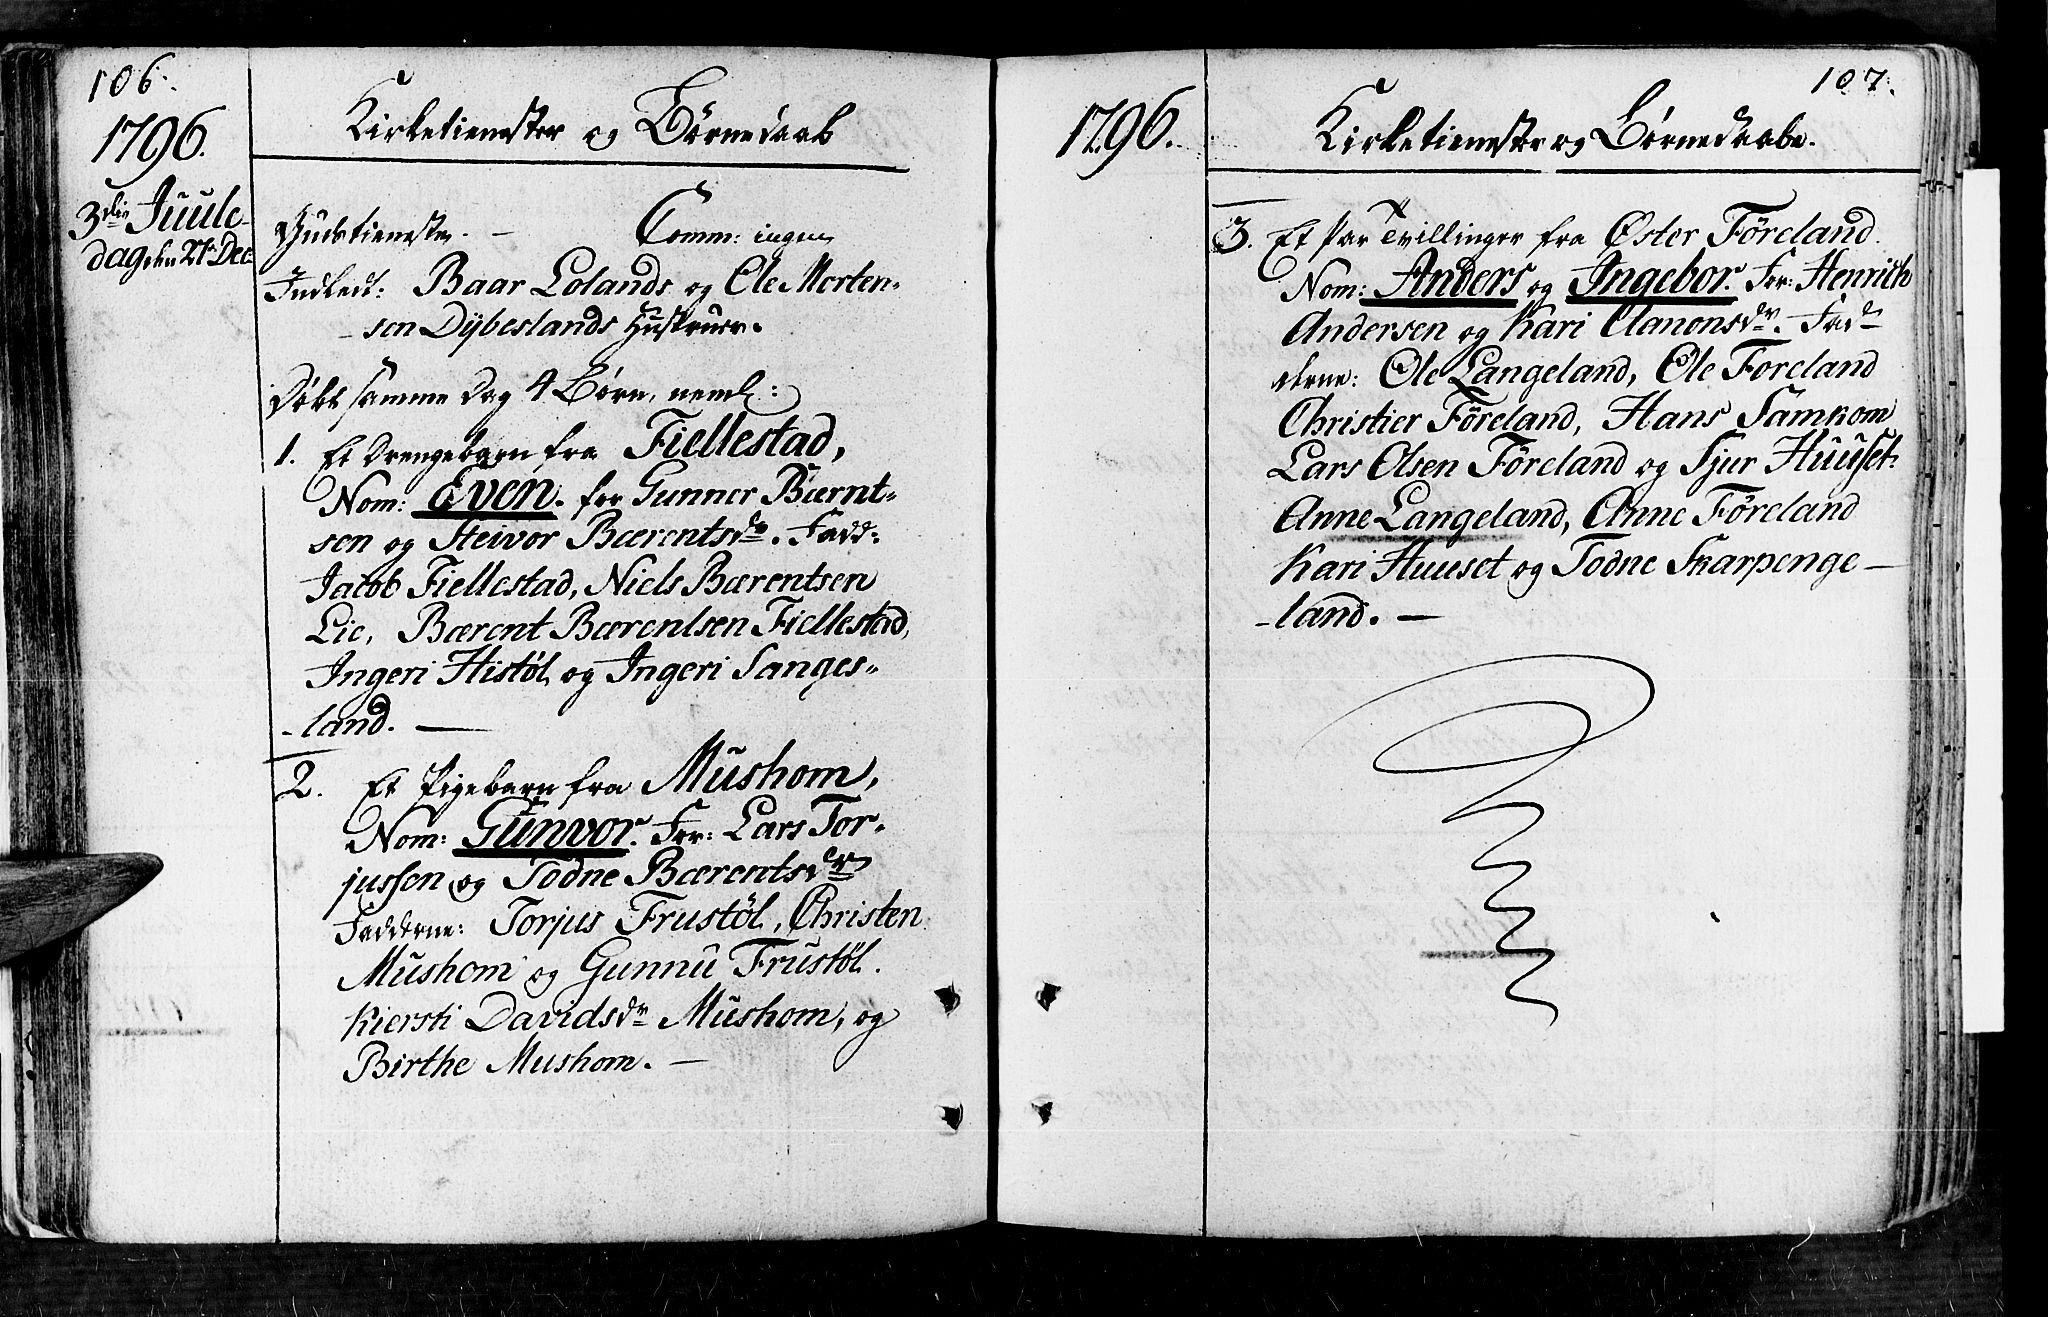 106.
1796.
Kirketienester og Børnedaab
3die Juule-
dag den 27de Dec:
Gudstieneste. — Comm: ingen
Indledt: Baar Lolands og Ole Morten-
sen Dybeslands Hustruer.
Døbt samme Dag 4 Børn, neml:
1. Et Drengebarn fra Fiellestad,
Nom: Even. For Gunner Bærnt-
sen og Steivor Bærentsdr. Fadd:
Jacob Fiellestad, Niels Bærentsen
Lie, Bærent Bærentsen Fiellestad,
Ingeri Histøl og Ingeri Sanges-
-land. —
2. Et Pigebarn fra Mushom,
Nom: Gunvor. For: Lars Tor-
jussen og Todne Bærentsdr
Fadderne: Torjus Frustøl, Christen
Mushom og Gunnu Frustøl.
Kiersti Davidsdr Mushom, og
Birthe Mushom. —
107.
1796.
Kirketienester og Børnedaabe.
3. Et Par Tvillinger fra Øster Föreland.
Nom: Anders og Ingebor. For: Henrich
Andersen og Kari Clanonsdr. Fad-
derne: Ole Langeland, Ole Foreland
Christier Föreland, Hans Samkom
Lars Olsen Föreland og Sjur Huuset.
Anne Langeland, Anne Föreland
Kari Huuset og Todne Skarpenge-
-land. —